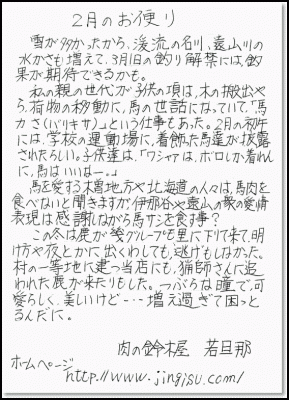 2月のお便り
雪が多かったから、渓流の名川、遠山川の
水かさも増えて、3月1日の釣り解禁には、釣
果が期待できるかも。
私の親の世代が子供の頃は、木の搬出や
ら、荷物の移動に、馬の世話になっていて、"馬
力さ(バリキサ)"という仕事もあった。2月の初午
には、学校の運動場に、着飾た馬達が披露
されたらしい。子供達は、「ワシャァは、ボロしか着れん
に、馬はいいなー。」
馬を愛する木曽地方や北海道の人々は、馬肉を
食べないと聞きますが、伊那谷や遠山の衆の愛情
表現は感謝しながら馬サシを食す事?
この冬は鹿が幾グループも里に下て来て、明
け方や夜とかに出くわしても、逃げもしなかった。
村の一等地に建つ当店にも、猟師さんに追
われた鹿が来たりもした。つぶらな瞳で、可
愛らしく、美しいけど・・・増え過ぎて困っと
るんだに。
肉の鈴木屋 若旦那
ホームページ
http://www.jingisu.com/